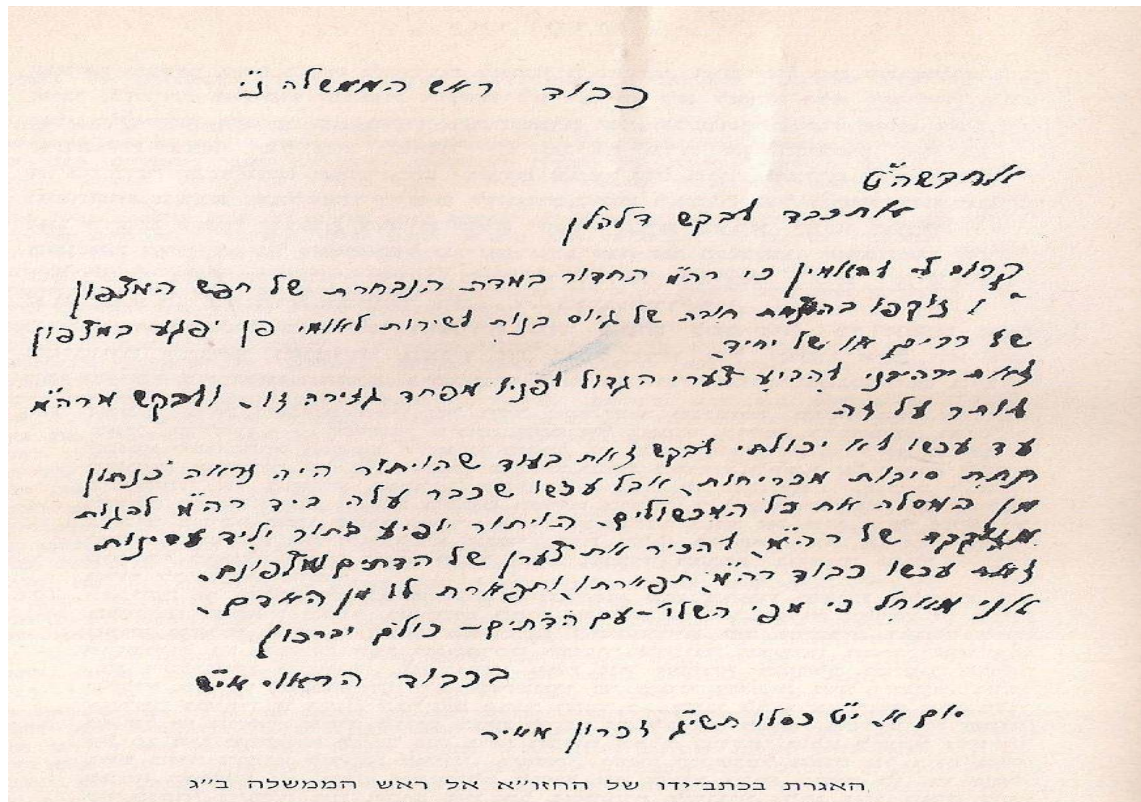 כבוד ראש הממשלה נ״י
אחדשה״ט
אתכבד לבקש דלהלן
קרוב לי להאמין כי רה״מ החדור במדת הנבחרת של חפש המצפון
חובה של גיוס בנות לשירות לאומי פן יפגע במצפון
של רבים או של יחיד.
להביע צערי הגדול לפניו מפחד גזירה זו. ולבקש מרה״מ
לותר על זה
עד עכשו לא יכולתי לבקש זאת בעוד שהויתור היה נראה כנתון
תחת סיבות מכריחות, אבל עכשו שכבר עלה ביד רה״מ לפנות
מן המסלה את כל המכשולים. הויתור יופיע בתור יליד עדינות
של רה״מ, להכיר את צערן של הדתים
עכשו כבוד רה״מ תפארתו ותפארת לו מן האדם.
אני מיחל כי מפי השלי״ – עם הדתים – כולם יברכון
בכבוד הראוי אי״ש
יום א׳ י״ט כסלו תשי״ג זכרון מאיר
האגרת בכתב־ידו של החזו״א אל ראש הממשלה ב״ג